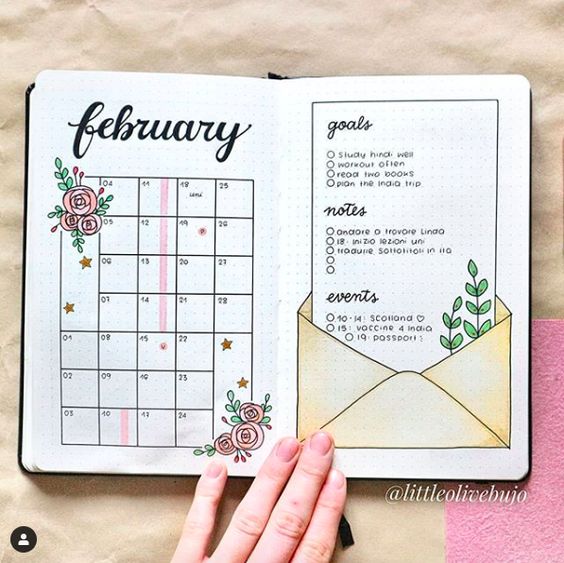 february
04 11 18 25
uni
05 12 19 26
P
06 13 20 27
07 14 21 28
01 08 15 22
v
02 09 16 23
03 10 17 24
goals
study hindi well
workout often
read two books
plan the India trip
notes
andare a trovare Linda
18: inizio lezioni uni
tradurre sottotitoli in ita
events
10-14: Scotland ♡
15: vaccine 4 India
19: passport
@littleolivebujo